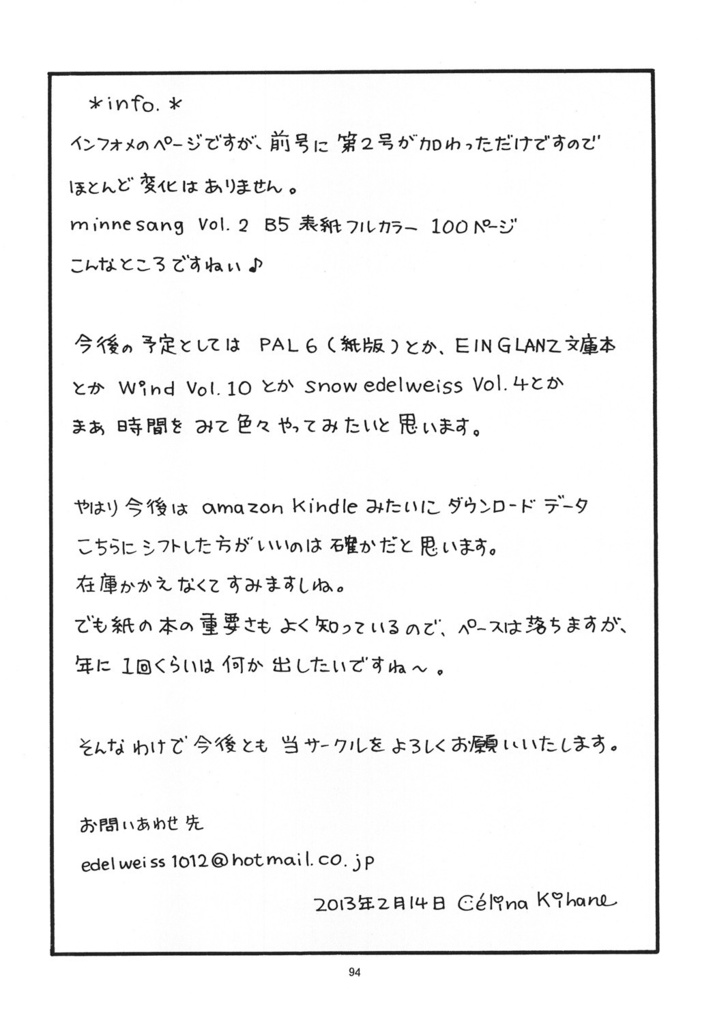 *info.*
インフォメのページですが、前号に第2号が加わっただけですので
ほとんど変化はありません。
minnesang Vol.2 B5 表紙フルカラー 100ページ
こんなところですねぃ♪
今後の予定としては PAL6(紙版)とか、EINGLANZ文庫本
とか Wind Vol.10 とか snow edelweiss Vol.4とか
まぁ 時間を みて 色々 やってみたいと思います。
やはり今後は amazon Kindle みたいに ダウンロード データ
こちらにシフトした方がいいのは確かだと思います。
在庫かかえなくてすみますしね。
でも紙の本の重要さもよく知っているので、ペースは落ちますが、
年に1回くらいは何か出したいですね〜。
そんなわけで今後とも 当サークルをよろしくお願いいたします。
お問いあわせ先
edelweiss1012@hotmail.co.jp
2013年2月14日 Célina Kihane
94